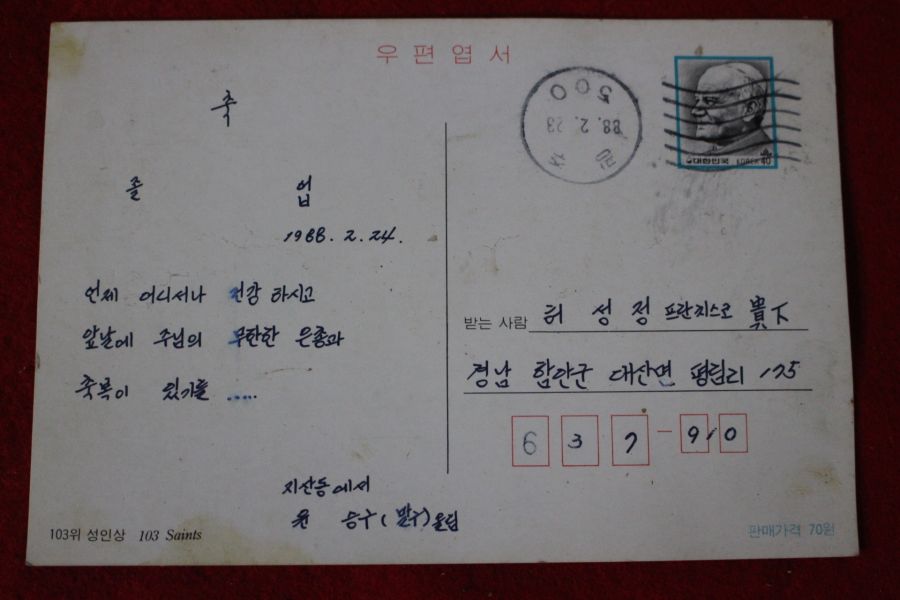 우편엽서
축
졸 업
1988. 2. 24.
언제 어디서나 건강 하시고
앞날에 주님의 무한한 은총과
축복이 있기를 .....
지산동에서
윤 승구( )올림
103위 성인상 103 Saints
500
88. 2. 23
대한민국 KOREA 40
받는 사람 허 성 정 프란치스코 貴下
경남 함안군 대산면 평림리 175
637-910
판매가격 70원